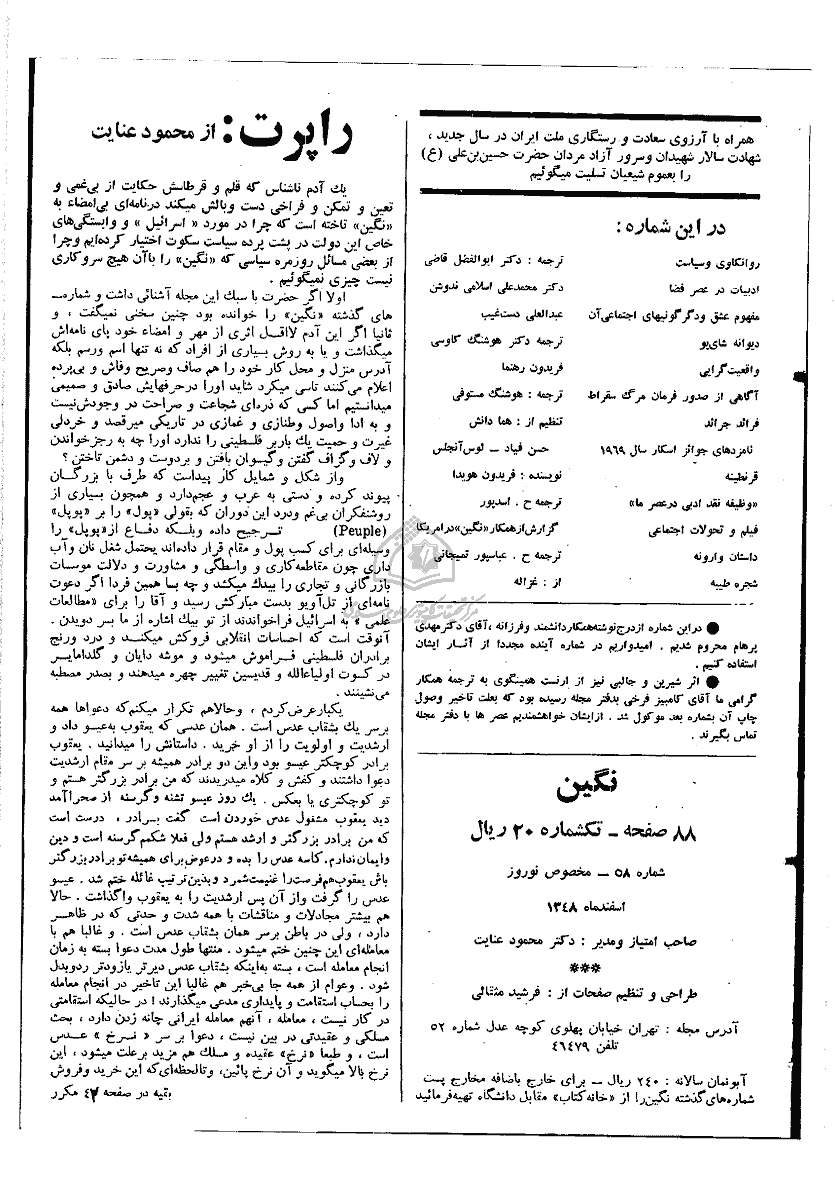 همراه با آرزوی سعادت و رستگاری ملت ایران در سال جدید ،
شهادت سالار شهیدان وسرور آزاد مردان حضرت حسین‌بن‌علی (ع)
را بعموم شیعیان تسلیت میگوئیم
در این شماره :
روانکاوی وسیاست ترجمه : دکتر ابوالفضل قاضی
ادبیات در عصر فضا دکتر محمدعلی اسلامی ندوشن
مفهوم عشق ودگرگونیهای اجتماعی‌آن عبدالعلی دست‌غیب
دیوانه شای‌یو ترجمه دکتر هوشنگ کاوسی
واقعیت‌گرایی فریدون رهنما
آگاهی از صدور فرمان مرگ سقراط ترجمه : هوشنگ مستوفی
فرائد جرائد تنظیم از : هما دانش
نامزدهای جوائز اسکار سال ۱۹۶۹ حسن فیاد ــ لوس‌آنجلس
قرنطینه نویسنده : فریدون هویدا
«وظیفه نقد ادبی درعصر ما» ترجمه ح . اسدپور
فیلم و تحولات اجتماعی گزارش‌ازهمکار «نگین»درامریکا
داستان وارونه ترجمه ح . عباسپور تمیجانی
شجره طیبه از : غزاله
● دراین شماره ازدرج‌نوشته‌همکاردانشمند وفرزانه ،آقای دکترمهدی
پرهام محروم شدیم . امیدواریم در شماره آینده مجددا از آثار ایشان
استفاده کنیم .
● اثر شیرین و جالبی نیز از ارنست همینگوی به ترجمه همکار
گرامی ما آقای کامبیز فرخی بدفتر مجله رسیده بود که بعلت تاخیر وصول
چاپ آن بشماره بعد موکول شد . ازایشان خواهشمندیم عصر ها با دفتر مجله
تماس بگیرند .
نگین
۸۸ صفحه ــ تکشماره ۲۰ ریال
شماره ۵۸ ــ مخصوص نوروز
اسفندماه ۱۳۴۸
صاحب امتیاز ومدیر : دکتر محمود عنایت
***
طراحی و تنظیم صفحات از : فرشید مثقالی
آدرس مجله : تهران خیابان پهلوی کوچه عدل شماره ۵۲
تلفن ۴۶۴۷۹
آبونمان سالانه : ۲۴۰ ریال ــ برای خارج باضافه مخارج پست
شماره‌های‌گذشته نگین‌را از «خانه‌کتاب» مقابل دانشگاه تهیه‌فرمائید
راپرت: از محمود عنایت
یك آدم ناشناس که قلم و قرطاسش حکایت از بی‌غمی و
تعین و تمکن و فراخی دست وبالش میکند درنامه‌ای بی‌امضاء به
«نگین» تاخته است که چرا در مورد « اسرائیل » و وابستگی‌های
خاص این دولت در پشت پرده سیاست سکوت اختیار کرده‌ایم وچرا
از بعضی مسائل روزمره سیاسی که «نگین» را باآن هیچ سروکاری
نیست چیزی نمیگوئیم .
اولا اگر حضرت با سبك این مجله آشنائی داشت و شماره‌ــ
های گذشته «نگین» را خوانده بود چنین سخنی نمیگفت ، و
ثانیا اگر این آدم لااقل اثری از مهر و امضاء خود پای نامه‌اش
میگذاشت و یا به روش بسیاری از افراد که نه تنها اسم ورسم بلکه
آدرس منزل و محل کار خود را هم صاف وصریح وفاش و بی‌پرده
اعلام می‌کنند تاسی میکرد شاید اورا درحرفهایش صادق و صمیمی
میدانستیم اما کسی که ذره‌ای شجاعت و صراحت در وجودش‌نیست
و به ادا واصول وطنازی و غمازی در تاریکی میرقصد و خردلی
غیرت و حمیت یك باربر فلسطینی را ندارد اورا چه به رجزخواندن
و لاف وگزاف گفتن وگیسوان بافتن و بردوست و دشمن تاختن ؟
واز شکل و شمایل کار پیداست که طرف با بزرگان
پیوند کرده و دستی به عرب و عجم‌دارد و همچون بسیاری از
روشنفکران بی‌غم ودرد این دوران که بقولی «پول» را بر «پوپل»
(Peuple) ترجیح داده وبلکه دفاع از«پوپل» را
وسیله‌ای برای کسب پول و مقام قرار داده‌اند یحتمل شغل نان وآب
داری چون مقاطعه‌کاری و واسطگی و مشاورت و دلالت موسسات
بازرگانی و تجاری را بیدك میکشد و چه بسا همین فردا اگر دعوت
نامه‌ای از تل‌آویو بدست مبارکش رسید و آقا را برای «مطالعات
علمی » به اسرائیل فراخواندند از تو بیك اشاره از ما بسر دویدن .
آنوقت است که احساسات انقلابی فروکش میکند و درد ورنج
برادران فلسطینی فراموش میشود و موشه دایان و گلدامایر
در کسوت اولیاءالله و قدیسین تغییر چهره میدهند و بصدر مصطبه
می‌نشینند .
یکبارعرض‌کردم ، وحالاهم تکرار میکنم‌که دعواها همه
برسر یك بشقاب عدس است . همان عدسی که یعقوب به‌عیسو داد و
ارشدیت و اولویت را از او خرید . داستانش را میدانید . یعقوب
برادر کوچکتر عیسو بود واین دو برادر همیشه بر سر مقام ارشدیت
دعوا داشتند و کفش و کلاه میدریدند که من برادر بزرگتر هستم و
تو کوچکتری یا بعکس . یك روز عیسو تشنه وگرسنه از صحراآمد
دید یعقوب مشغول عدس خوردن است گفت برادر ، درست است
که من برادر بزرگتر و ارشد هستم ولی فعلا شکمم‌گرسنه است و دین
وایمان‌ندارم. کاسه عدس را بده و درعوض‌برای همیشه‌تو برادر بزرگتر
باش یعقوب‌هم‌فرصت‌را غنیمت‌شمرد وبدین‌ترتیب غائله ختم شد . عیسو
عدس را گرفت واز آن پس ارشدیت را به یعقوب واگذاشت . حالا
هم بیشتر مجادلات و مناقشات با همه شدت و حدتی که در ظاهر
دارد ، ولی در باطن برسر همان بشقاب عدس است . و غالبا هم با
معامله‌ای این چنین ختم میشود . منتها طول مدت دعوا بسته به زمان
انجام معامله است ، بسته به‌اینکه بشقاب عدس دیرتر یازودتر ردوبدل
شود . وعوام از همه جا بی‌خبر هم غالبا این تاخیر در انجام معامله
را بحساب استقامت و پایداری مدعی میگذارند ؛ در حالیکه استقامتی
در کار نیست ، معامله ، آنهم معامله ایرانی چانه زدن دارد ، بحث
مسلکی و عقیدتی در بین نیست ، دعوا بر سر « نرخ » عدس
است ، و طبعا «نرخ» عقیده و مسلك هم مزید برعلت میشود ، این
نرخ بالا میگوید و آن نرخ پائین، وتالحظه‌ای‌که این خرید وفروش
بقیه در صفحه ۴۷ مکرر